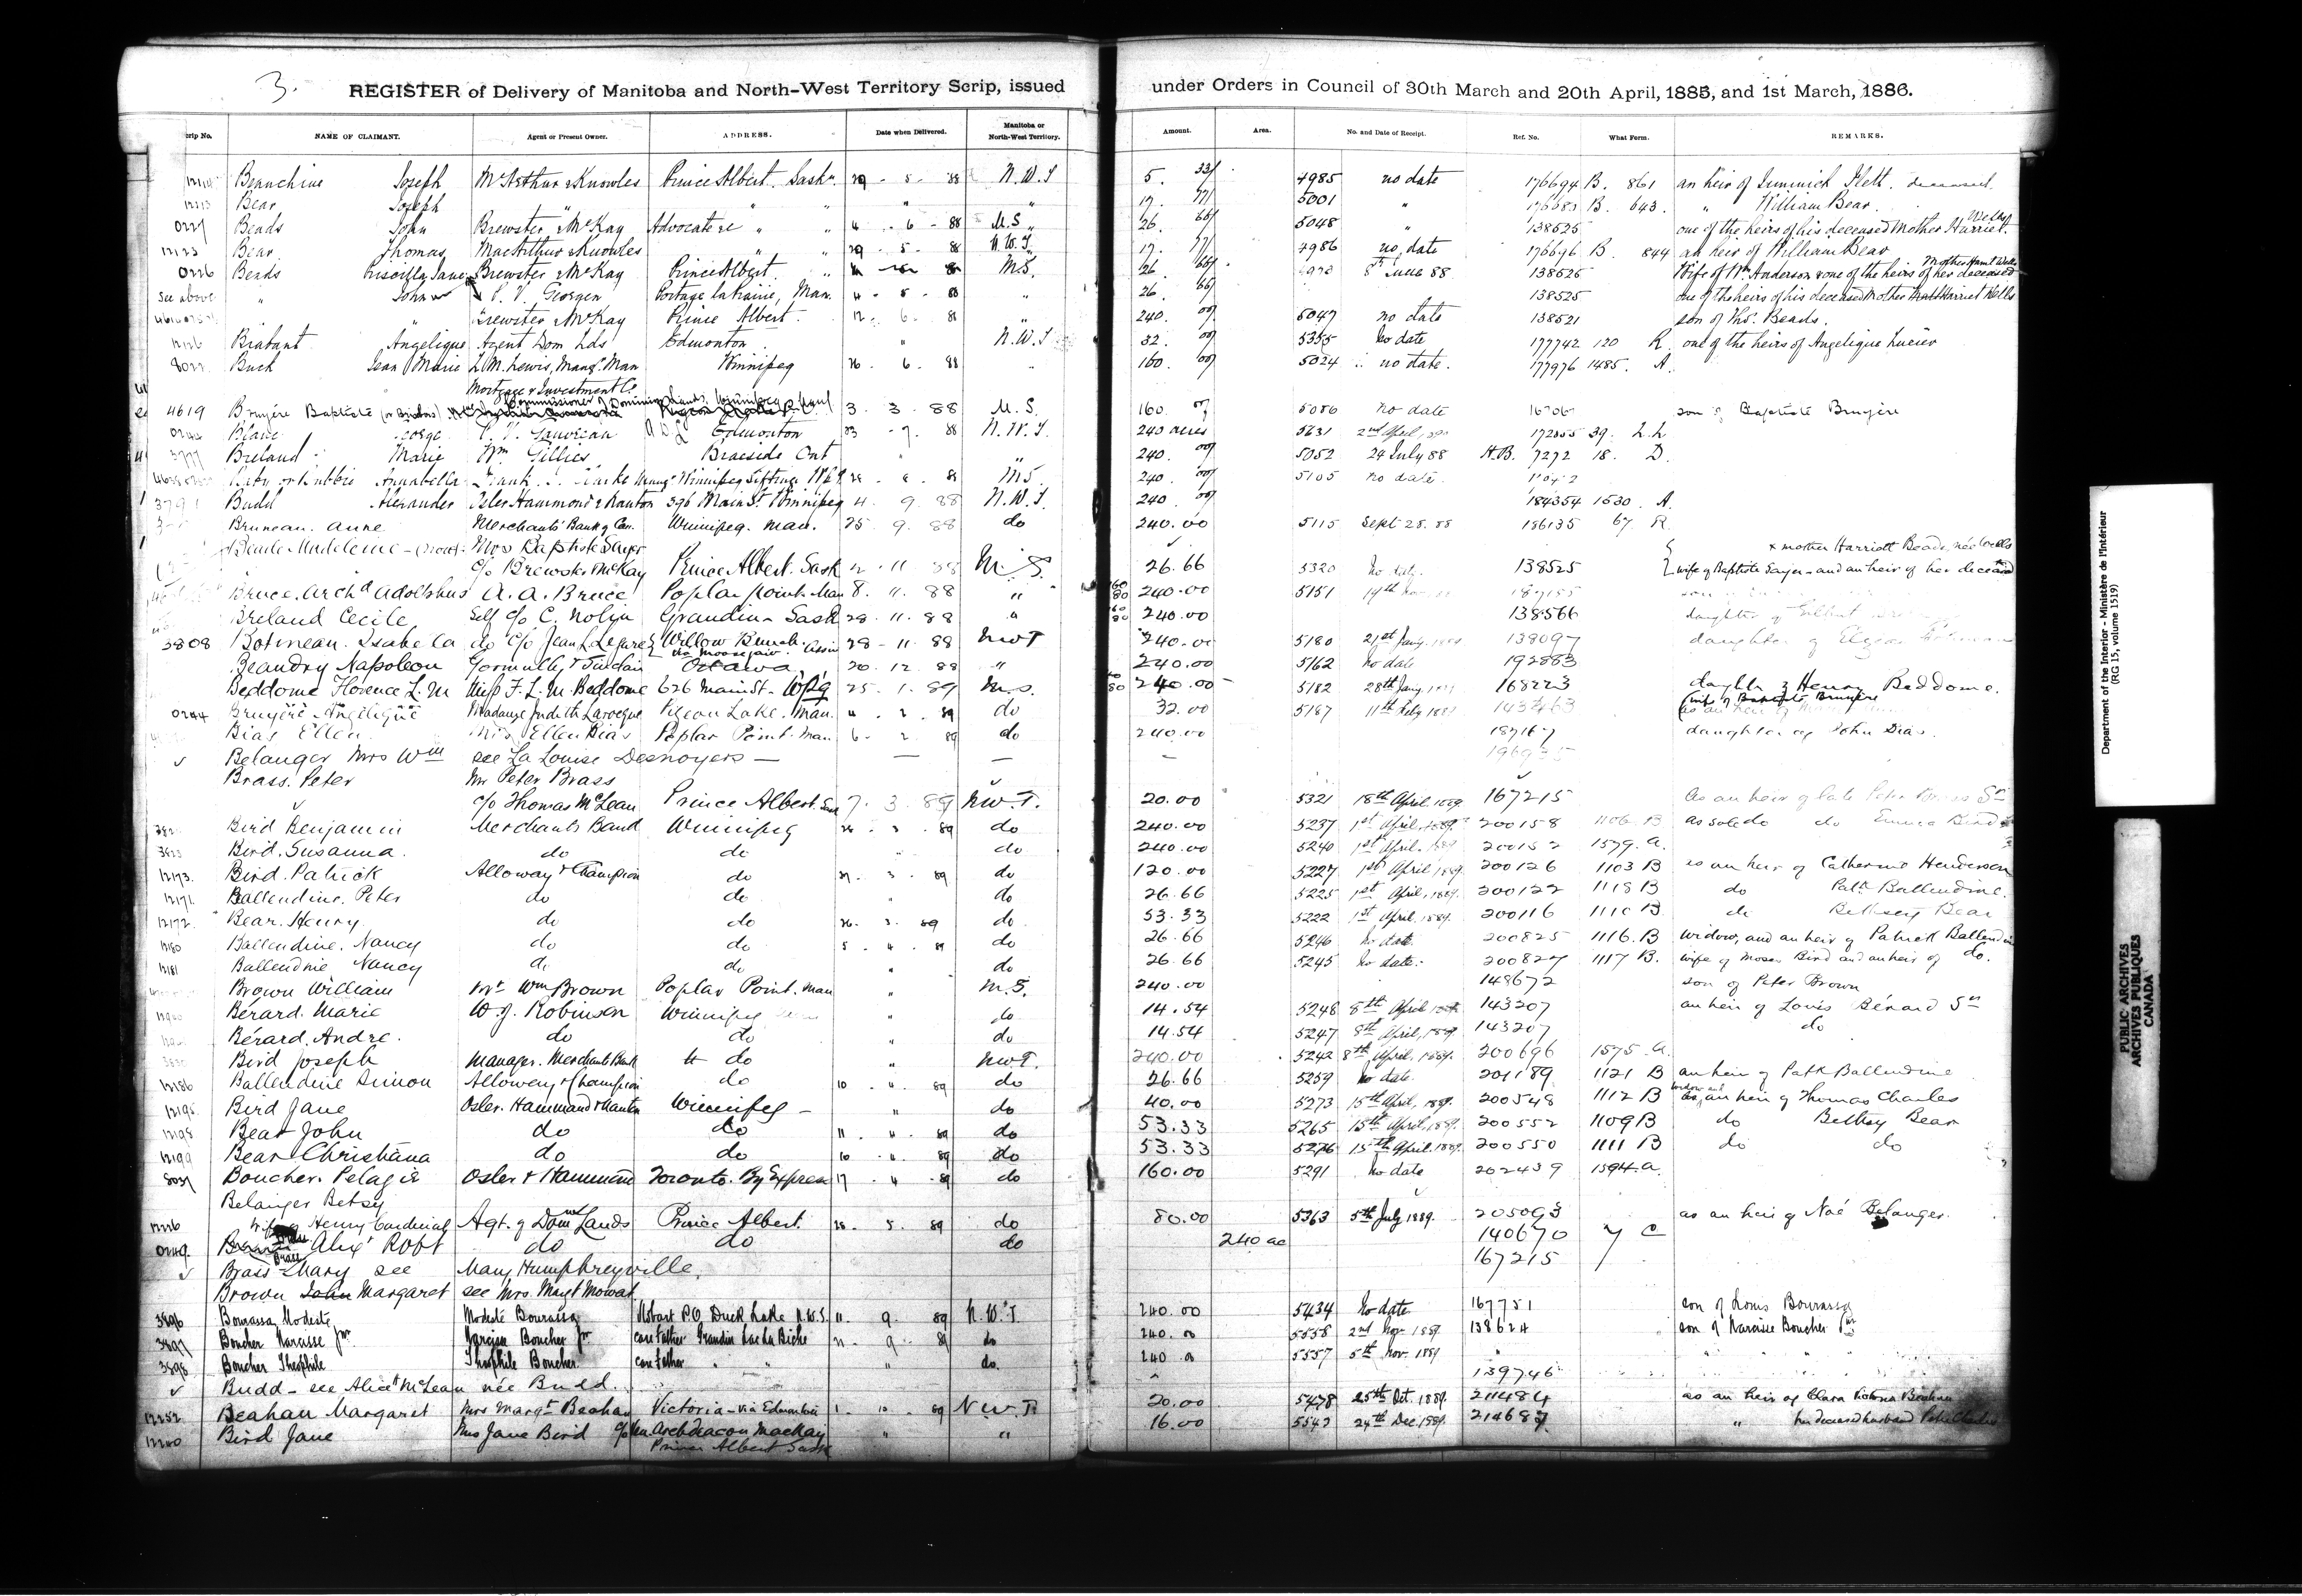 3.
REGISTER of Delivery of Manitoba and North-West Territory Scrip, issued under Orders in Council of 30th March and 20th April, 1885, and 1st March, 1886.
rip No. NAME OF CLAIMANT. Agent or Present Owner. ADDRESS. Date when Delivered. Manitoba or North-West Territory. Amount. Area. No. and Date of Receipt. Ref. No. What Form. REMARKS.
Joseph McArthur & Knowles Prince Albert. Saskn. 29 - 5 - 88 N.W.T 5. 33/ 4985 no date 176694 B. 861 an heir of deceased
Bear Joseph " " " " 17. 77/ 5001 " 176683 B. 643. " William Bear
0227 Beads John Brewster & McKay Advocate &c " " 4 - 6 - 88 M.S. 26. 66/ 5048 " 138525 one of the heirs of his deceased Mother Harriet Wells
12123 Bear Thomas MacArthur & Knowles " " 29 - 5 - 88 N.W.T. 17. 77/ 4986 no date 176696 B. 844 an heir of William Bear
0226 Beads Brewster & McKay Prince Albert. " M.S. 26 66/ 8th June 88 138525 Wife of Wm Anderson & one of the heirs of her deceased Mother Harrt Wells
see above " John Georgen Portage la Prairie, Man. 4 - 5 - 88 " 26. 66/ 138525 one of the heirs of his deceased Mother Harriet Wells
" Brewster & McKay Prince Albert. 12 - 6 - 88 " 240. 00/ 5047 no date 138521 son of Ths. Beads.
Brabant Angelique Agent Dom Lds Edmonton. " N.W.T 32. 00/ 5355 No date 177742 120 R. one of the heirs of Angelique Lucier
8022 Buck Jean Marie L.M. Lewis, Mangr. Man Winnipeg 26 - 6 - 88 " 160. 00/ 5024 no date. 177976 1485. A.
Mortgage & Investment Co
Commissioner of Dominion Lands, Winnipeg Man
4619 Bruyère Baptiste 3. 3. 88 M.S. 160. 5086 no date son of Baptiste Bruyère
George Edmonton 23 - 7. 88 N.W.T. 240 acres 5631 2nd April, 39. L.L
Breland Marie Wm Gillies Braeside Ont " 240. 00/ 5052 24 July 88 H.B. 7272 18. D.
Annabella Winnipeg Siftings Wpg. M.S. 240. 00/ 5105 no date.
3791 Budd Alexander Osler Hammond & Nanton 396 Main St. Winnipeg 4. 9. 88 N.W.T. 240 00/ 184354 1530. A.
Bruneau. Anne Merchants' Bank of Can. Winnipeg. Man. 25. 9. 88 do 240.00 5115 Sept 28. 88 186135 67. R.
Madeleine Mrs Baptiste Sayer x mother Harriett Beads, née Wells
c/o Brewster McKay Prince Albert. Sask 2. 11. 88 M.S. 26.66 5320 No date 138525 wife of Baptiste Sayer - and an heir of her deceased
Bruce. Archd Adolphus A.A. Bruce Poplar Point. Man 8. 11. 88 " 240.00 5151 14th
Breland Cecile Self c/o C. Nolin Grandin - Sask 23. 11. 88 " 240.00 138566 daughter of Gilbert
3808 Botineau. Isabella do c/o Jean L. Legaré Willow Bunch. via Moosejaw Assin 28 - 11. 88 NWT 240.00 5180 21st Jany. 138097 daughter of
Beaudry Napoleon Ottawa 20. 12. 88 " 240.00 5162 No date 192883
Beddome Florence L.M Miss F.L.M. Beddome 626 Main St - Wpg 25. 1. 89 M.S. 240.00 5182 28th Jany. 168223 daughter of Henry Beddome.
0244 Bruyère Angelique Madame Judith Larocque Pigeon Lake. Man. 4. 2. 89 do 32.00 5187 11th Feby 1889 (wife of Baptiste Bruyère
Bias Ellen Mrs Ellen Bias Poplar Point. Man 6. 2. 89 do 240.00 daughter of John Bias.
Belanger Mrs Wm see La Louise Desnoyers — — — —
Brass. Peter Mr Peter Brass
c/o Thomas McLean Prince Albert. Sask 7. 3. 89 NW.T. 20.00 5321 18th April 1889. 167215 As an heir of late Peter Brass Sr
Bird Benjamin Merchants Bank Winnipeg 26. 3. 89 do 240.00 5237 1st April, 1889. 200158 1106 B as sole do do Emma Bird
Bird. Susanna. do do do 240.00 5240 1st April. 1579. A.
12173. Bird. Patrick Alloway & Champion do 27. 3. 89 do 120.00 5227 1st April. 1889. 200126 1103 B as an heir of Catherine Henderson
12171. Ballendine. Peter do do " do 26.66 5225 1st April, 1889. 200122 1118 B do Patk Ballendine.
12172. Bear. Henry. do do 26. 3. 89 do 53.33 5222 1st April, 1889. 200116 1110 B do Bethsey Bear
12180 Ballendine. Nancy do do 5. 4. 89 do 26.66 5246 No date. 200825 1116. B widow, and an heir of Patrick Ballendine
12181 Ballendine Nancy do do " do 26.66 5245 No date. 200827 1117 B. wife of Moses Bird and an heir of do.
Brown William Mr Wm Brown Poplar Point. Man " M.S. 240.00 148672 son of Peter Brown
Berard. Marie W.J. Robinson Winnipeg " do 14.54 5248 8th April 143207 an heir of Louis Bérard Sr
Bérard. Andre. do do " do 14.54 5247 8th April, 1889 143207 do
Bird Joseph Manager. Merchants Bank do " NW.T. 240.00 5242 8th April, 1889. 200696 1575. A.
12186 Ballendine Simon Alloway & Champion do 10. 4. 89 do 26.66 5259 No date. 201189 1121 B an heir of Patk Ballendine
12195 Bird Jane Osler. Hammond & Nanton Winnipeg - " do 40.00 5273 15th April, 1889. 200548 1112 B widow and as an heir of Thomas Charles
12198 Bear John do do 11. 4. 89 do 53.33 5265 15th April, 1889. 200552 1109 B do Bethsy Bear
12199 Bear Christiana do do 10. 4. 89 do 53.33 5276 15th April 1889. 200550 1111 B do do
8037 Boucher. Pelagie Osler & Hammond Toronto. By Express 17. 4. 89 do 160.00 5291 No date 202439 1594. A.
Belanger Betsy
12226 wife of Henry Cardinal Agt. of Domn Lands Prince Albert. 28. 5. 89 do 80.00 5363 5th July 1889. 205093 as an heir of Noé Belanger.
0249. Alexr Robt do do do 240 ac 140670 7 C
Brass Mary see Mary Humphreyville. 167215
Brown John Margaret see Mrs. Margt Mowat.
3896 Bourassa Modeste Modeste Bourassa Hobart P.O. Duck Lake N.W.T. 11. 9. 89 N.W.T. 240.00 5434 No date 167751 son of Louis Bourassa
3897 Boucher Narcisse Jnr. Narcisse Boucher Jr care Father Grandin Lac La Biche 21. 9. 89 do 240. 5558 2nd Nov. 1889. 138624 son of Narcisse Boucher Snr
3898 Boucher Theophile Theophile Boucher. care Father " " " do. 240 5557 5th Nov. 1889
Budd - see Alice McLean née Budd. 139746
12252 Beahan Margaret Mrs Margt Beahan Victoria - via Edmonton 1. 10. 89 N.W.T. 20.00 5478 25th Oct. 1889. 211484 as an heir of Clara Victoria Beahan
Bird Jane Mrs Jane Bird c/o Ven. Archdeacon MacKay " " 16.00 5542 24th Dec. 1889. " her deceased husband
Prince Albert Sask
Department of the Interior - Ministère de l'Intérieur
(RG 15, volume 1519)
PUBLIC ARCHIVES
ARCHIVES PUBLIQUES
CANADA